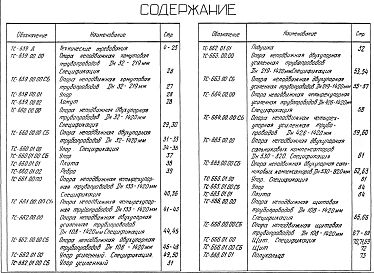 СОДЕРЖАНИЕ
Обозначение Наименование Стр Обозначение Наименование Стр
ТС-659 Д Технические требования 4-25
ТС-659.00.00 Опора неподвижная хомутовая
трубопроводов Dн 32-219мм
Спецификация 26
ТС-659.00.00 СБ Опора неподвижная хомутовая
трубопроводов Dн 32-219мм 27
ТС-659.00.01 Упор 28
ТС-659.00.02 Хомут 28
ТС-660.00.00 Опора неподвижная двухупорная
трубопроводов Dн 32-1420мм
Спецификация 29,30
ТС-660.00.00 СБ Опора неподвижная двухупорная
трубопроводов Dн 32-1420мм 31-33
ТС-660.01.00 Упор Спецификация 34-36
ТС-660.01.00 СБ Упор 37
ТС-660.01.01 Плита 38
ТС-660.01.02 Ребро 39
ТС-661.00.00 Опора неподвижная четырехупор-
ная трубопроводов Dн 133-1420мм
Спецификация 40
Опора неподвижная четырехупор-
ная трубопроводов Dн 133-1420мм 41-43
ТС-662.00.00 Опора неподвижная двухупорная
усиленная трубопроводов
Dн 108-1420мм Спецификация 44,45
ТС-662.00.00 СБ Опора неподвижная двухупорная
усиленная трубопроводов
Dн 108-1420мм 46-48
ТС-662.01.00 Упор усиленный. Спецификация 49,50
ТС-662.01.00 СБ Упор усиленный 51
ТС-662.01.01 Подушка 52
ТС-663.00.00 Опора неподвижная двухупорная
усиленная трубопроводов
Dн 219-1420мм Спецификация 53,54
ТС-663.00.00 СБ Опора неподвижная двухупорная
усиленная трубопроводов Dн 219-1420мм
ТС-664.00.00 Опора неподвижная четырехупорная
усиленная трубопроводов
Спецификация 58
ТС-664.00.00 СБ Опора неподвижная четырех-
упорная усиленная трубо-
проводов Dн 426-1420мм 59,60
ТС-665.00.00 Опора неподвижная двухупорная
сальниковых компенсаторов
Dн 530-820 Спецификация 61
ТС-665.00.00 СБ Опора неподвижная двухупорная саль-
никовых компенсаторов Dн 530-820мм 62,63
ТС-665.01.00 Упор. Спецификация
ТС-665.01.00 СБ Упор 64
ТС-665.01.01 Плита 64
ТС-666.00.00 Опора неподвижная щитовая
трубопроводов Dн 108-1420мм
Спецификация 65,66
ТС-666.00.00 СБ Опора неподвижная щитовая
трубопроводов Dн 108-1420мм 67-69
ТС-666.01.00 Щит. Спецификация
ТС-666.01.00 СБ Щит 72
ТС-666.01.01 Полукольцо 73